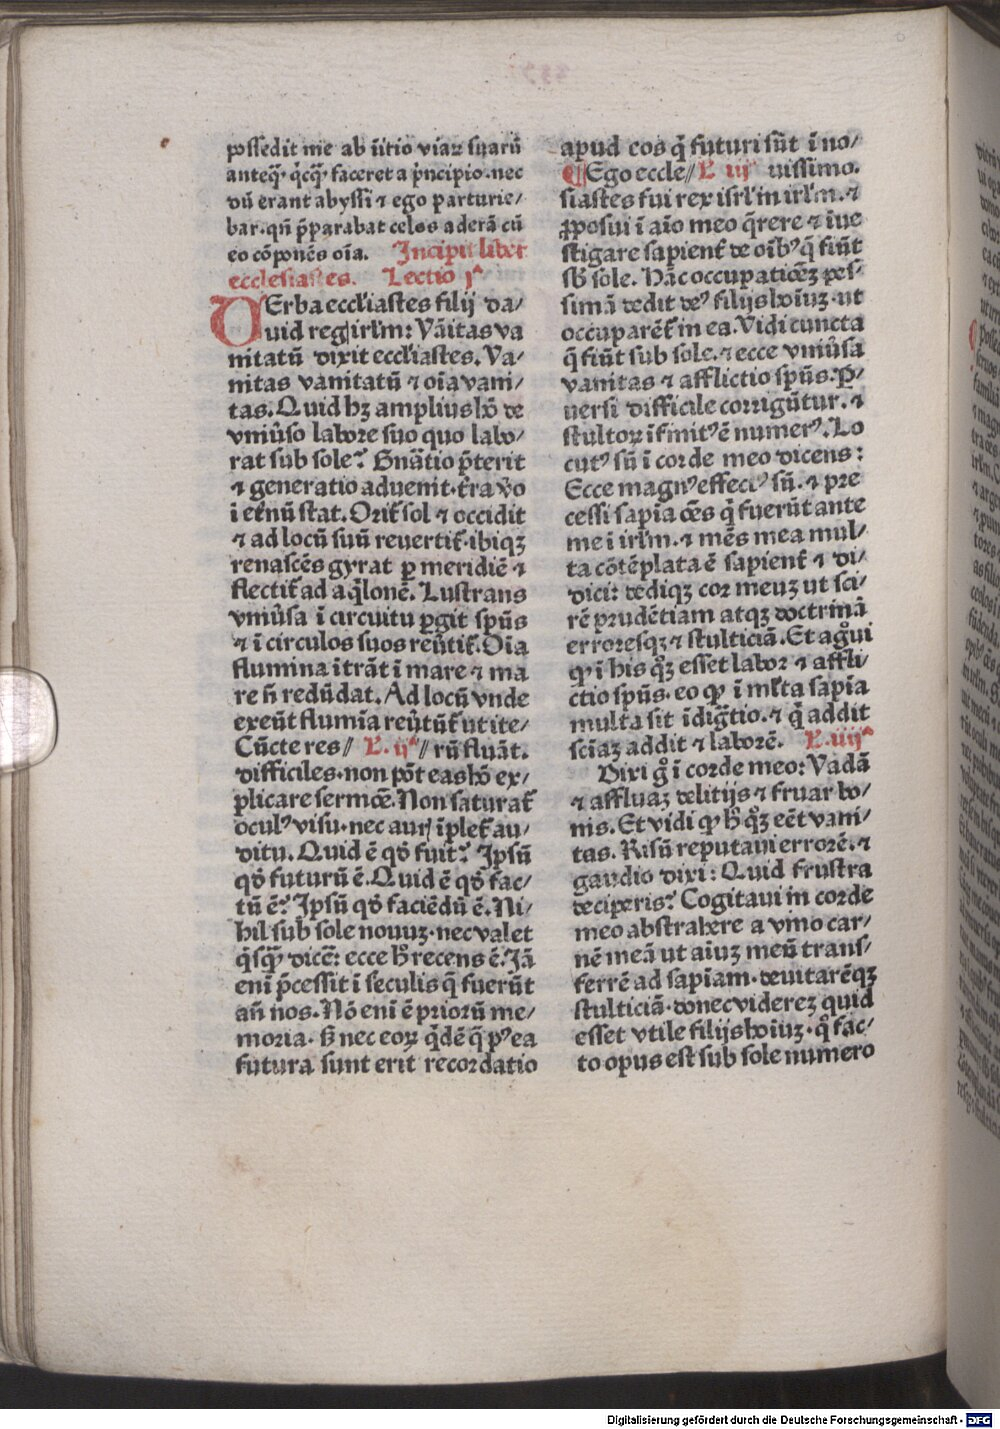 possedit me ab ĩitio viaꝝ suarũ
anteqͣ ꝙcqͣ faceret a pͥncipio·nec
dũ erant abyssi ⁊ ego parturie/
bar·qñ p̃parabat celos aderã cũ
eo cõponẽs oĩa. Incipit liber
ecclesiastes. Lectio jᵃ
VErba eccl'iastes filij da/
uid reg̃ irl'm: Vãitas va
nitatũ dixit eccl'iastes. Va/
nitas vanitatũ ⁊ oĩa vani/
tas. Quid hꝫ amplius hõ de
vniũso labore suo quo labo/
rat sub sole? Gñatio p̃terit
⁊ generatio aduenit·t̃ra v̊o
i et̃nũ stat. Orit̃ sol ⁊ occidit
⁊ ad locũ suũ reuertit̃·ibiqꝫ
renascẽs gyrat ꝑ meridiẽ ⁊
flectit̃ ad aq̃lonẽ. Lustrans
vniũsa ĩ circuitu ꝑgit spũs
⁊ ĩ circulos suos reũtit̃. Oĩa
flumina itrãt ĩ mare ⁊ ma
re ñ redũdat. Ad locũ vnde
exeũt flumĩa reũtũt̃ ut ite/
Cũcte res// L. ijᵃ // rũ fluãt.
difficiles·non põt eas hõ ex/
plicare sermõe. Non saturat̃
oculꝰ visu·nec aurꝭ ĩplet̃ au/
ditu. Quid ẽ qð fuit? Ipsũ
qð futurũ ẽ. Quid ẽ qð fac/
tũ ẽ? Ipsũ qð faciẽdũ ẽ. Ni/
hil sub sole nouuꝫ·nec valet
q̃sqͣ dicẽ: ecce h̊ recens ẽ. Iã
enĩ p̃cessit ĩ seculis q̃ fuerũt
añ nos. Nõ enĩ ẽ priorũ me/
moria· sꝫ nec eoꝝ q̃dẽ q̃ pꝰea
futura sunt erit recordatio
apud eos q̃ futuri sũt ĩ no/
¶Ego eccle// L iijᵃ uissimo.
siastes fui rex isrl' in irl'm·⁊
ꝓposui ĩ aĩo meo q̃rere ⁊ ĩue
stigare sapient̃ de oĩbꝰ q̃ fiũt
sb̃ sole. Hãc occupatiõeꝫ pes/
simã dedit deꝰ filijs hoĩuꝫ·ut
occuparẽt̃ in ea. Vidi cuncta
q̃ fiũt sub sole·⁊ ecce vniũsa
vanitas ⁊ afflictio spũs. P̲/
uersi difficile corrigũtur·⁊
stultoꝝ ĩfinitꝰ ẽ numerꝰ. Lo
cutꝰ sũ ĩ corde meo dicens:
Ecce magnꝰ effectꝰ sũ·⁊ pre
cessi sapĩa oẽs q̃ fuerũt ante
me i irl'm·⁊ mẽs mea mul/
ta cõtẽplata ẽ sapient̃ ⁊ di/
dici: dediqꝫ cor meuꝫ ut sci/
rẽ prudẽtiam atqꝫ doctrinã
erroresqꝫ ⁊ stulticiã. Et ag̊ui
ꝙ ĩ his q̊ꝫ esset labor ⁊ affli/
ctio spũs·eo ꝙ ĩ ml'ta sapĩa
multa sit ĩdig̃tio·⁊ q̃ addit
sciaꝫ addit ⁊ laborẽ. L. iiijᵃ
Dixi g̊ ĩ corde meo: Vadã
⁊ affluaꝫ delitijs ⁊ fruar bo/
nis. Et vidi ꝙ h̊ q̊ꝫ eẽt vani/
tas. Risũ reputaui errorẽ·⁊
gaudio dixi: Quid frustra
deciperis? Cogitaui in corde
meo abstrahere a vino car/
nẽ meã ut aiuꝫ meũ trans/
ferrẽ ad sapiam·deuitarẽqꝫ
stulticiã·donec videreꝫ quid
esset vtile filijs hoĩuꝫ·q̊ fac/
to opus est sub sole numero
Digitalisierung gefördert durch die Deutsche Forschungsgemeinschaft - DFG